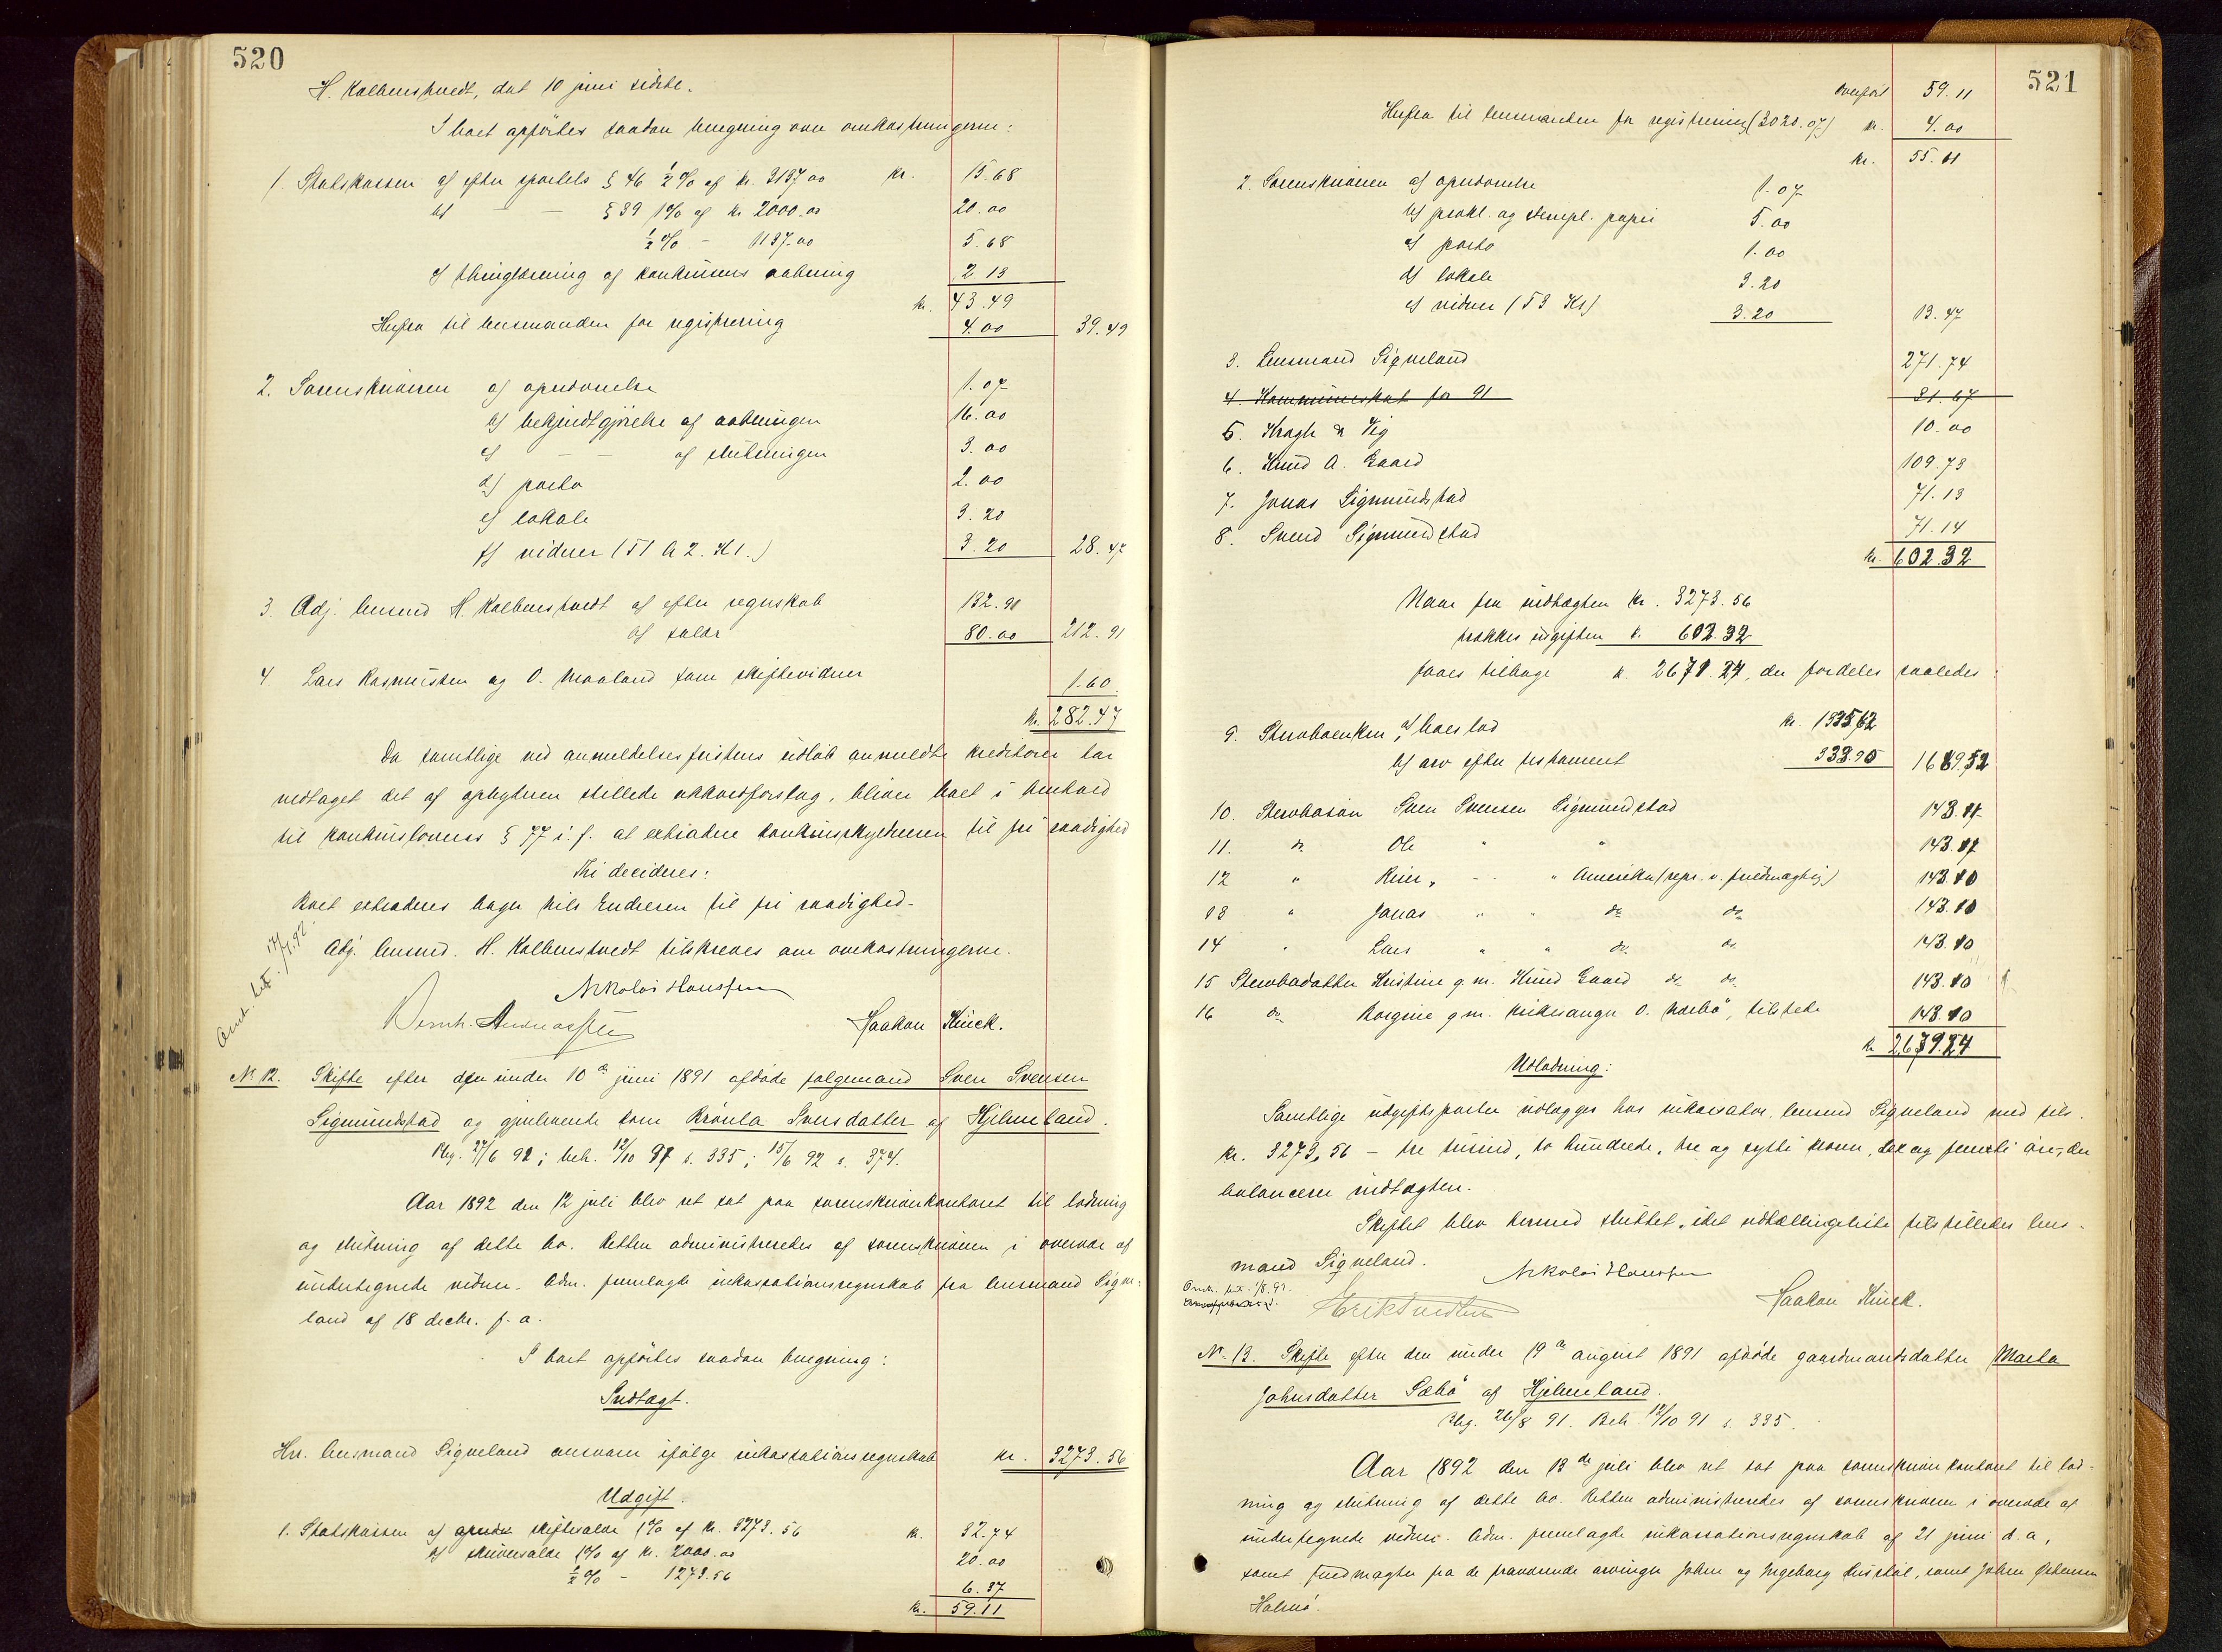 520
H. Kolbenstvedt, dat 10 juni sidste.
I boet opførtes saadan beregning over omkostningerne:
1. Statskassen a) efter sportels § 46 ½ % af kr. 3137.00 kr. 15.68
b) — — § 39 1% af kr 2000.00 20.00
½ % — 1137.00 5.68
c) thinglæsning af konkursens aabning 2.13
kr. 43.49
Herfra til lensmanden for registrering 4.00 39.49
2. Sorenskriveren a) opudvørelse 1.07
b) bekjendtgjørelse af aabningen 16.00
c) — — af slutningen 3.00
d) porto 2.00
e) lokale 3.20
f) vidner (51 A 2. Kl.) 3.20 28.47
3. Adj. lensmd H. Kolbenstvedt a) efter regnskab 132.91
b) salær 80.00 212.91
4 Lars Rasmussen og O. Maaland som skiftevidner 1.60
kr. 282.47
Da samtlige ved anmeldelsesfristens udløb anmeldte kreditorer har
vedtaget det af opbyderen stillede akkordforslag, bliver boet i henhold
til konkurslovens § 77 i. f. at extradere konkursskyldneren til fri raadighed
Thi decideres:
Boet extraderes bager Nils Endresen til fri raadighed.
Adj. lensmd. H. Kolbenstvedt tilskreves om omkostningerne.
Nikolai Hanssen
Bernh. Andreassen Haakon Hinck.
No 12. Skifte efter den under 10de juni 1891 afdøde følgemand Sven Svensen
Sigmundstad og gjenlevende kone Brønla Svensdatter af Hjelmeland.
Reg. 27/6 91; beh. 12/10 91 s. 335; 15/6 92 s. 374.
Aar 1892 den 12 juli blev ret sat paa sorenskriverkontoret til lodning
og slutning af dette bo. Retten administreredes af sorenskriveren i overvær af
undertegnede vidner. Adm. fremlagte inkassationsregnskab fra lensmand Sigve-
land af 18 decbr. f. a.
I boet opførtes saadan beregning:
Indtægt.
Hr. lensmand Sigveland ansvarer ifølge inkassationsregnskab kr. 3273.56
Udgift.
1. Statskassen a) skiftesalær 1% af kr. 3273.56 kr. 32.74
b) skriversalær 1% af kr. 2000.00 20.00
½ % — 1273.56 6.37
kr. 59.11
521
overført 59.11
Herfra til lensmanden for registrering (3020.07) kr. 4.00
kr. 55.11
2. Sorenskriveren a) opudvørelse 1.07
b) prokl. og stempl. papir 5.00
c) porto 1.00
d) lokale 3.20
e) vidner (53 Kl) 3.20 13.47
3. Lensmand Sigveland 271.74
4. Kommuneskat for 91 31.67
5. Kragh & Vig 10.00
6. Knud A. Gaard 109.73
7. Jonas Sigmundstad 71.13
8. Svend Sigmundstad 71.14
kr. 602.32
Naar fra indtægten kr. 3273.56
trækkes udgiften k. 602.32
faaes tilbage k. 2671.24, der fordeles saaledes:
9. Stervboenken, a) boeslod kr. 1335.62
b) arv efter testament 333.90 1669.52
10. Stervbosøn Sven Svensen Sigmundstad 143.11
11. do Ole " " 143.11
12 " Reier " — " Amerika (repr. v. fuldmægtig) 143.10
13 " Jonas " " do do 143.10
14 " Lars " " do. do. 143.10
15 Stervbodatter Kristine g. m. Knud Gaard do do 143.10
16 do Borgine g m. kirkesanger O. Norbø, tilstede 143.10
kr 2671.24
Udlodning:
Samtlige udgiftsposter udlægges hos inkassator, lensmd Sigveland med tils.
kr. 3273,56 — tre tusind, to hundrede, tre og sytti kroner, sex og femti øre, der
balancerer indtægten.
Skiftet blev hermed sluttet, idet udtællingsliste tilstilledes lens-
mand Sigveland.
Nikolai Hanssen
Erik Haakon Hinck.
No. 13. Skifte efter den under 19de august 1891 afdøde gaardmandsdatter Marta
Johnsdatter Sæbø af Hjelmeland.
Reg. 26/8 91. Beh. 12/10 91 s. 335.
Aar 1892 den 13de juli blev ret sat paa sorenskriverkontoret til lod-
ning og slutning af dette bo. Retten administreredes af sorenskriveren i overvær af
undertegnede vidner. Adm. fremlagde inkassationsregnskab af 21 juni d. a,
samt fuldmagter fra de fraværende arvinger John og Ingeborg, samt John
Halmø.